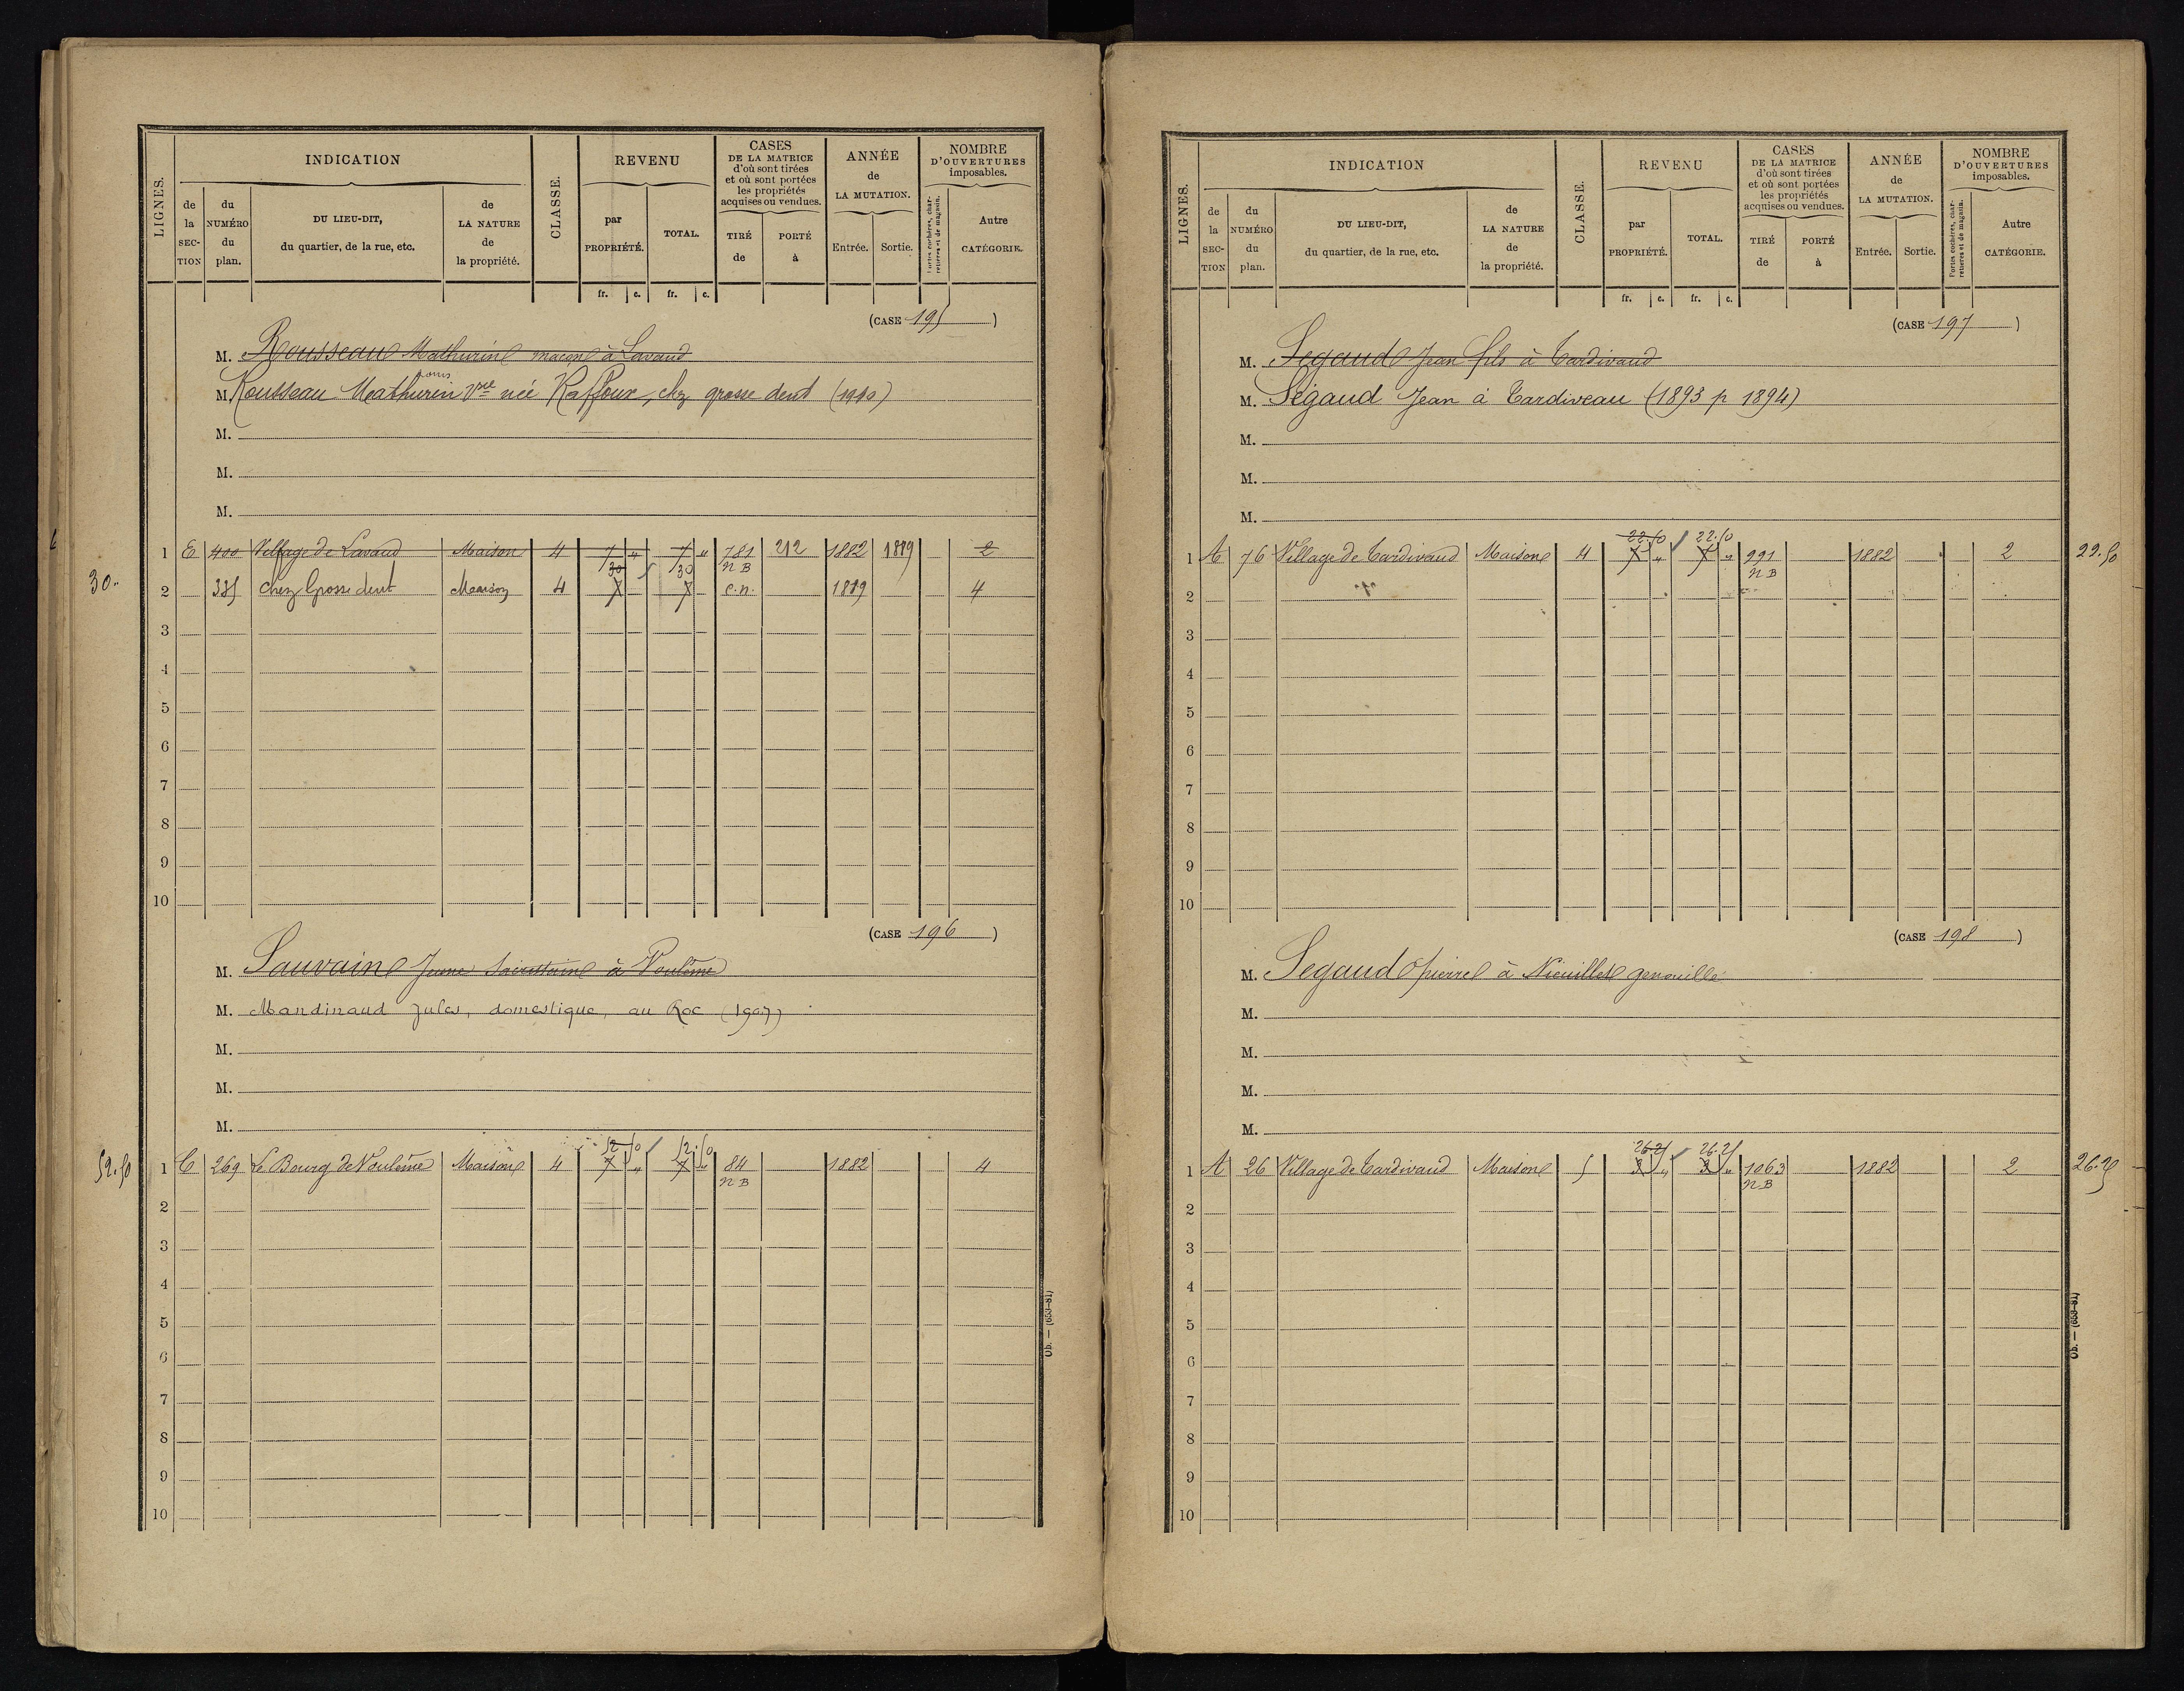 LIGNES.
INDICATION
CLASSE.
REVENU
CASES DE LA MATRICE d'où sont tirées et où sont portées les propriétés acquises ou vendues.
ANNÉE de LA MUTATION.
NOMBRE D'OUVERTURES imposables.
de la SEC-TION
du NUMÉRO du plan.
DU LIEU-DIT, du quartier, de la rue, etc.
de LA NATURE de la propriété.
par PROPRIÉTÉ.
TOTAL.
TIRÉ de
PORTÉ à
Entrée.
Sortie.
Portes cochères, charretières et de magasin.
Autre CATÉGORIE.
fr. c. fr. c.
(CASE 195)
M. Rousseau Mathurin maçon à Lavaud
M. Rousseau Mathurin Vve née Raffoux, chez grosse dent (1910)
M.
M.
M.
1 E 400 Village de Lavaud Maison 4 7 " 7 " 781 212 1882 1889 2
30 30 NB
30.. 2 385 Chez Grosse dent Maison 4 7 7 c.n. 1889 4
3
4
5
6
7
8
9
10
(CASE 196)
M. Sauvaine Jeune à Voulême
M. Mandinaud Jules, domestique, au Roc (1907)
M.
M.
M.
52.50 52.50
52.50 1 C 269 Le Bourg de Voulême Maison 4 7 " 7 " 84 1882 4
NB
2
3
4
5
6
7
8
9
10
Ob. — (653-81)
LIGNES.
INDICATION
CLASSE.
REVENU
CASES DE LA MATRICE d'où sont tirées et où sont portées les propriétés acquises ou vendues.
ANNÉE de LA MUTATION.
NOMBRE D'OUVERTURES imposables.
de la SEC-TION
du NUMÉRO du plan.
DU LIEU-DIT, du quartier, de la rue, etc.
de LA NATURE de la propriété.
par PROPRIÉTÉ.
TOTAL.
TIRÉ de
PORTÉ à
Entrée.
Sortie.
Portes cochères, charretières et de magasin.
Autre CATÉGORIE.
fr. c. fr. c.
(CASE 197)
M. Segaud Jean fils à Tardivaud
M. Ségaud Jean à Tardiveau (1893 p 1894)
M.
M.
M.
22.50 22.50
1 A 76 Village de Tardivaud Maison 4 7 " 7 " 991 1882 2 22.50
NB
2
3
4
5
6
7
8
9
10
(CASE 198)
M. Segaud pierre à Nieuillet genouillé
M.
M.
M.
M.
26.25 26.25
1 A 26 Village de Tardivaud Maison 5 3 " 3 " 1063 1882 2 26.25
NB
2
3
4
5
6
7
8
9
10
Ob. — (653-81)